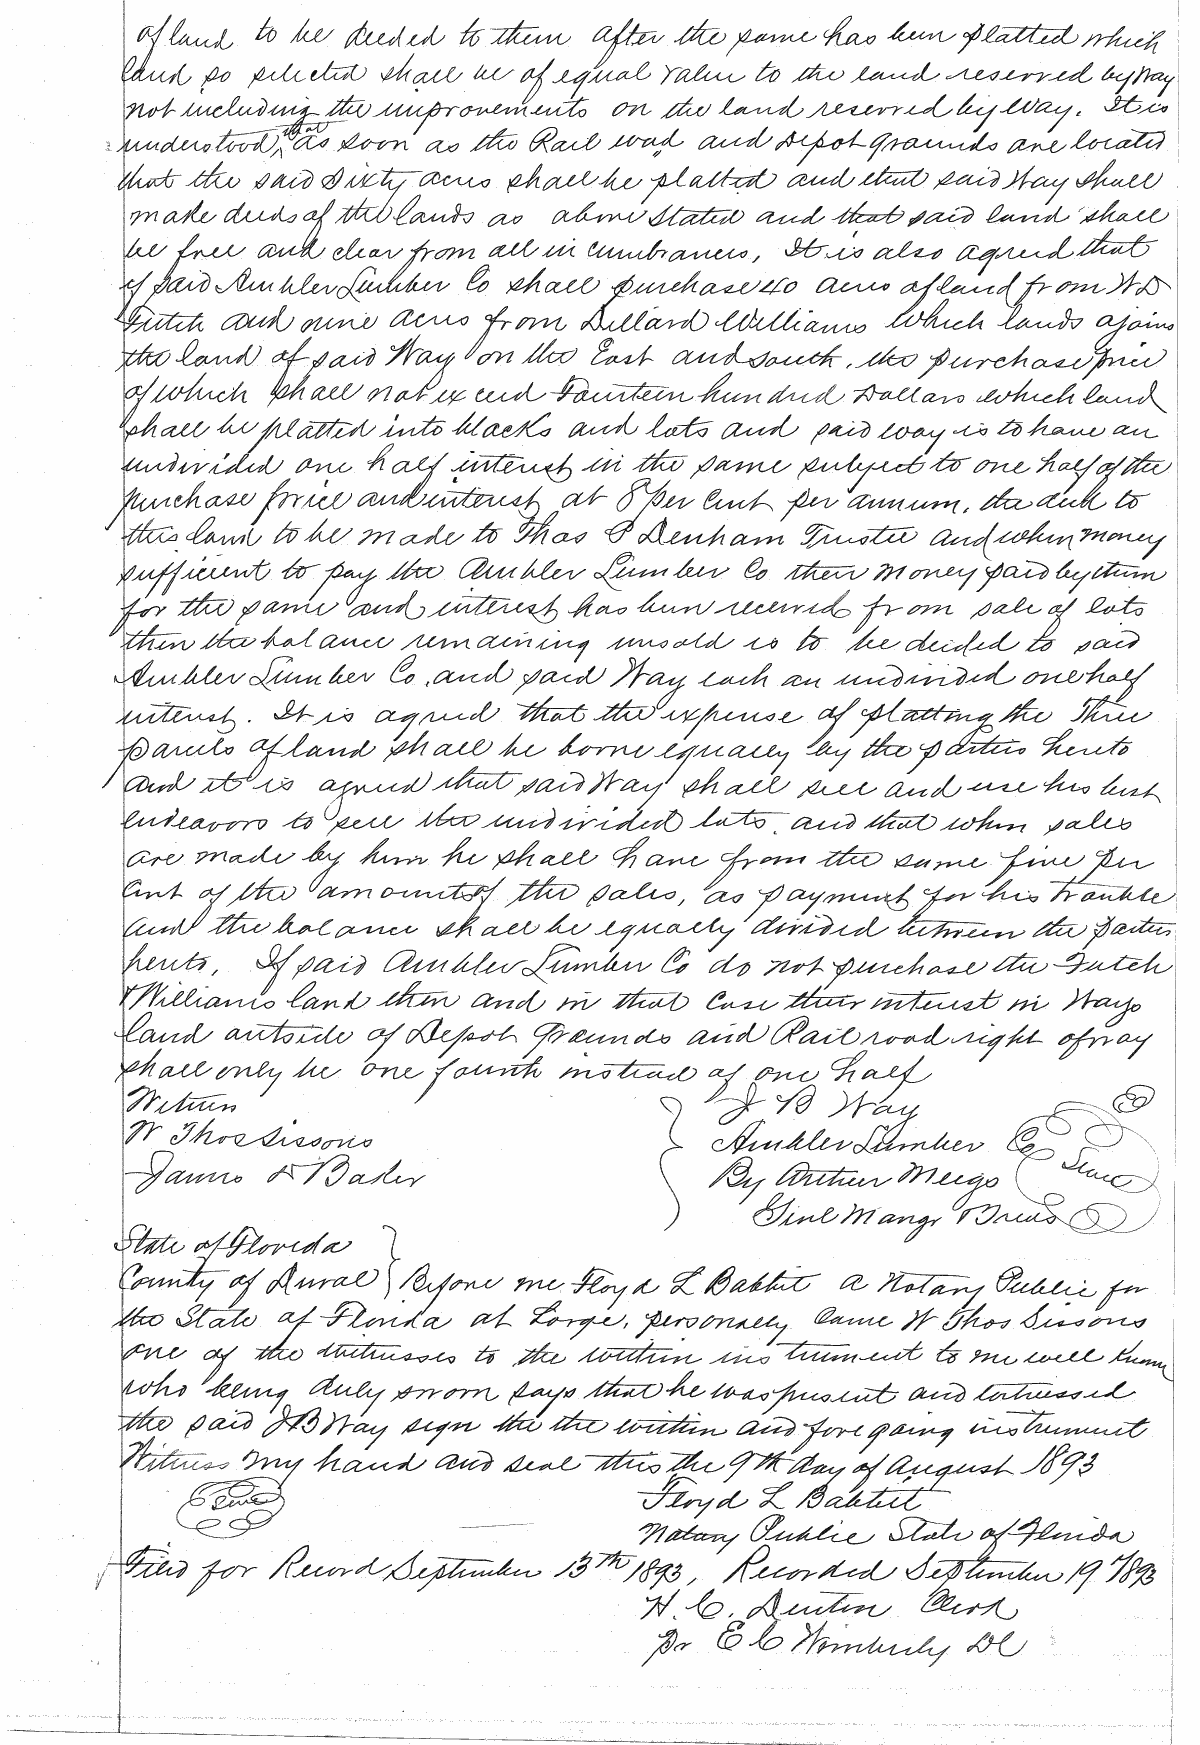 of land to be deeded to them after the same has been platted which
land so selected shall be of equal value to the land reserved by Way
not including the improvements on the land reserved by Way. It is
understood, that as soon as the Rail road and Depot grounds are located
that the said Sixty acres shall be platted and that said Way shall
make deeds of the lands as above Stated and that said land shall
be free and clear from all in cumbrances, It is also agreed that
if said Ambler Lumber Co shall purchase 40 acres of land from W D
Futch and nine acres from Dillard Williams which lands ajoins
the land of said Way on the East and South, the purchase price
of which shall not exceed Fourteen hundred Dollars which land
shall be platted into blocks and lots and said way is to have an
undivided one half interest in the same subject to one half of the
purchase price and interest at 8 per Cent per annum, the deed to
this land to be made to Thos P Denham Trustee and when money
sufficient to pay the Ambler Lumber Co then money paid by them
for the same and interest has been received from sale of lots
then the balance remaining unsold is to be deeded to said
Ambler Lumber Co. and said Way each an undivided one half
interest. It is agreed that the expense of platting the Three
parcels of land shall be borne equally by the parties hereto
and it is agreed that said Way shall sell and use his best
endeavors to sell the undivided lots, and that when sales
are made by him he shall have from the same five per
cent of the amounts of the sales, as payment for his trouble
and the balance shall be equally divided between the parties
hereto, If said Ambler Lumber Co do not purchase the Futch
& Williams land then and in that case their interest in Ways
land outside of Depot Grounds and Rail road right of way
shall only be one fourth instead of one half
Witness J B Way
W Thos Sissons Ambler Lumber Co Seal
James Baker By Arthur Meigs
Genl Mangr & Treas
State of Florida
County of Duval } Before me Floyd L Babbit a Notary Public for
the State of Florida at Large, personally came W Thos Sissons
one of the witnesses to the within instrument to me well known
who being duly sworn says that he was present and witnessed
the said J B Way sign the the within and fore going instrument
Witness my hand and seal this the 9th day of August 1893
Seal Floyd L Babbit
Notary Public State of Florida
Filed for Record September 13th 1893, Recorded September 19 1893
H. C. Denton Clerk
Pr E C Wimberly DC